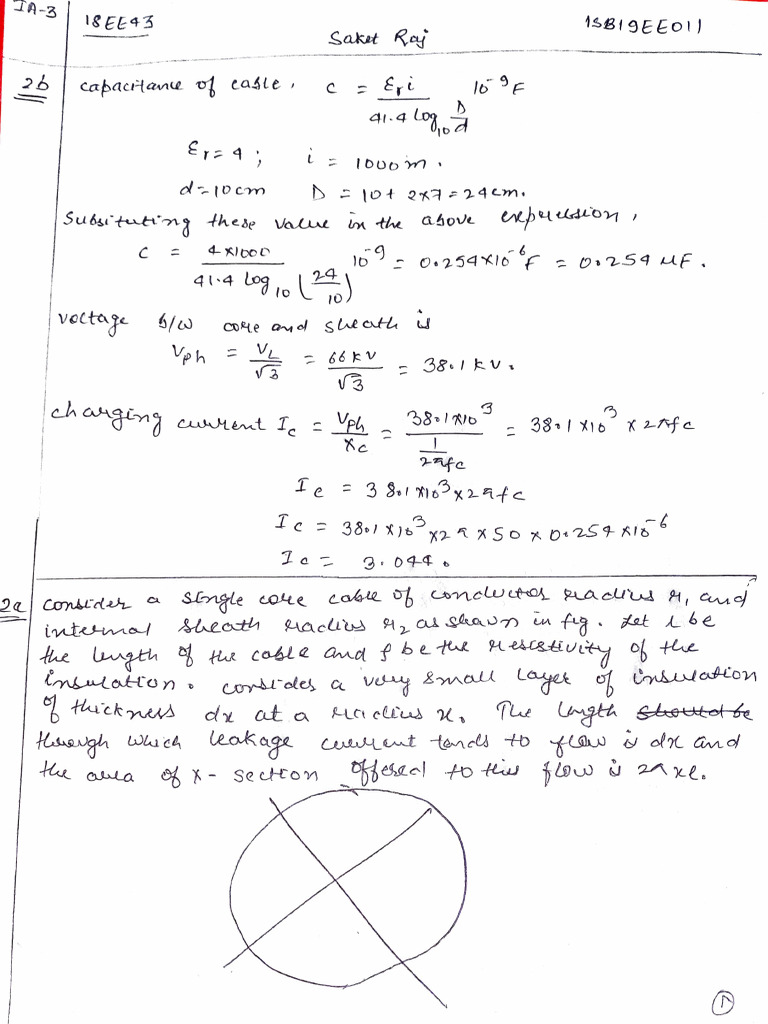 IA-3
18EE43
Saket Raj
1SB19EE011
2b capacitance of cable, c = εr i / 41.4 log10 D/d 10^-9 F
εr = 4 ; i = 1000 m.
d = 10 cm D = 10 + 2×7 = 24 cm.
Substituting these value in the above expression,
C = 4×1000 / 41.4 log10 (24/10) 10^-9 = 0.254×10^-6 F = 0.254 μF.
voltage b/w core and sheath is
Vph = VL/√3 = 66 kV/√3 = 38.1 kV.
charging current Ic = Vph/Xc = 38.1×10^3 / 1/2πfc = 38.1×10^3 × 2πfc
Ic = 38.1×10^3×2πfc
Ic = 38.1×10^3×2π×50×0.254×10^-6
Ic = 3.044.
2a consider a single core cable of conductor radius r1, and
internal sheath radius r2 as shown in fig. Let l be
the length of the cable and ρ be the resistivity of the
insulation. consider a very small layer of insulation
of thickness dx at a radius x. The length should be
through which leakage current tends to flow is dx and
the area of x-section offered to this flow is 2πxl.
1